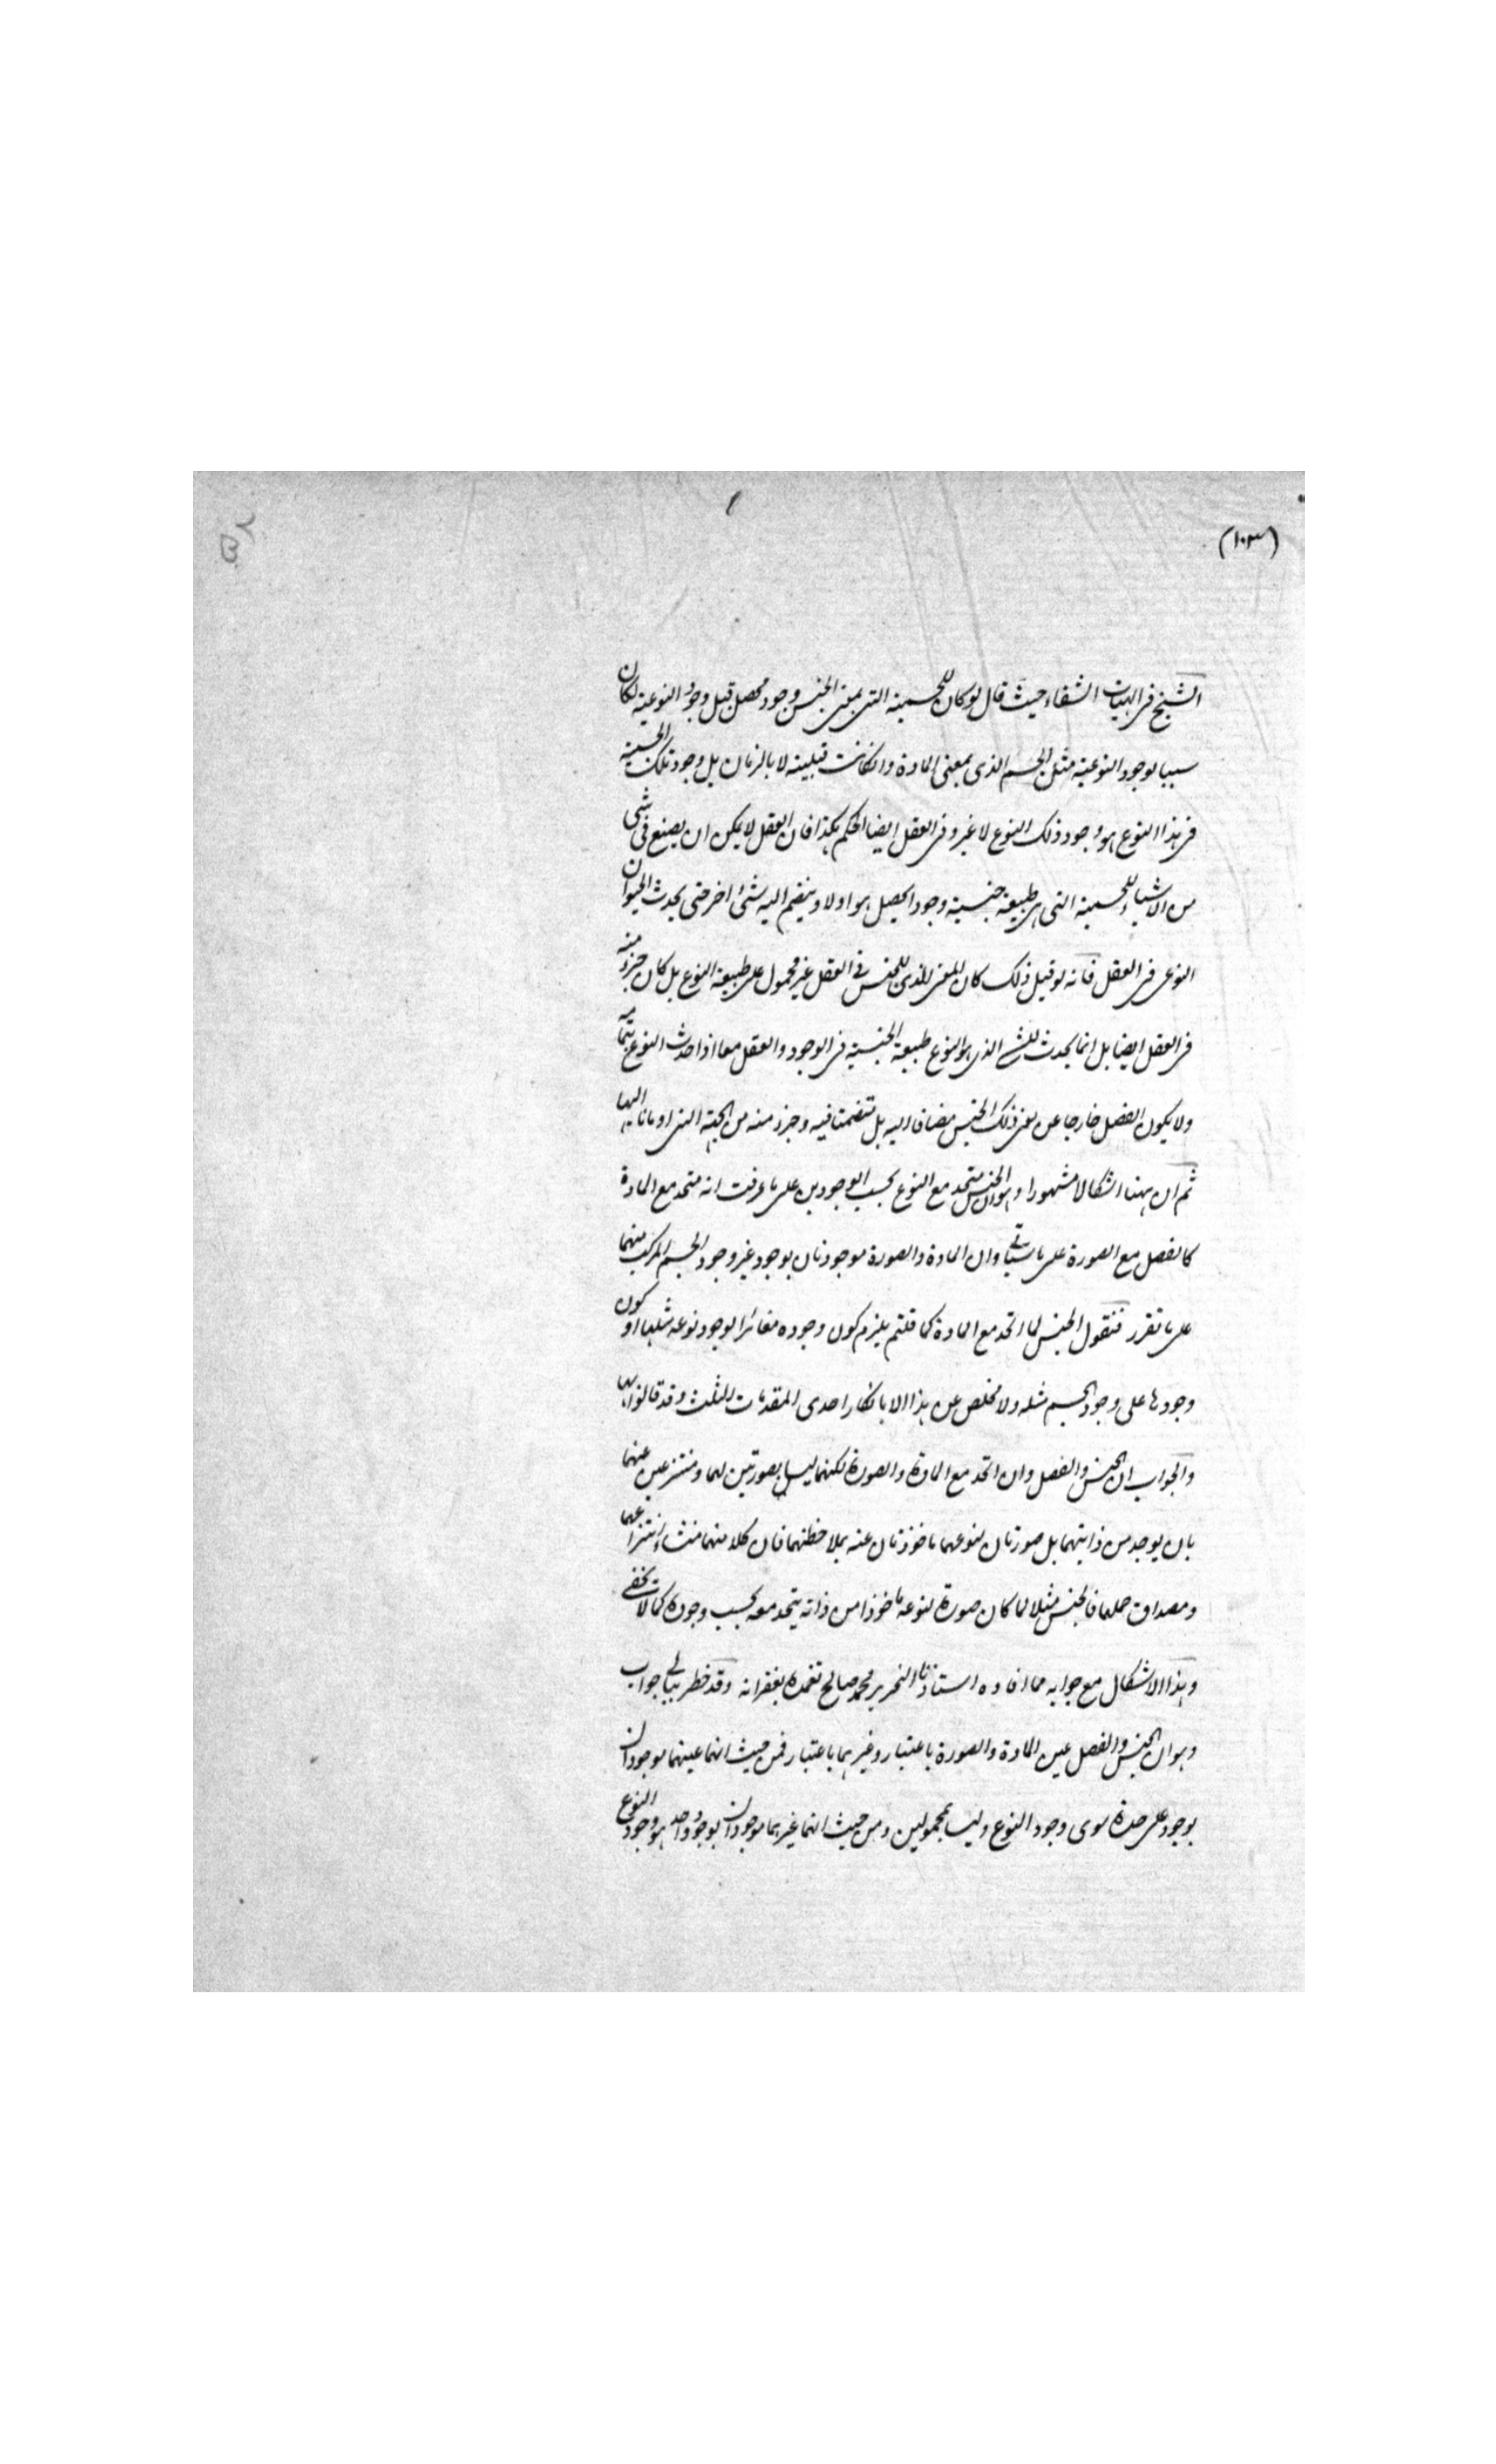 (١٠٣)
الشيخ فى الهيات الشفاء حيث قال لو كان للجسمية التى بمعنى الجنس وجود محصل قبل وجود النوعية لكان
سببا لوجود النوعية مثل الجسم الذى بمعنى المادة وان كانت قبليته لا بالزمان بل وجود تلك الجسمية
فى هذا النوع هو وجود ذلك النوع لا غير وفى العقل ايضا الحكم هكذا فان العقل لا يمكن ان يصنع فى شى
من الاشياء للجسمية التى هى طبيعة جنسية وجودا يحصل هو اولا وينضم اليه شئ اخر حتى يحدث الحيوان
النوعى فى العقل فانه لو قيل ذلك كان المعنى الذى للجنس فى العقل غير محمول على طبيعة النوع بل كان جزء منه
فى العقل ايضا بل انما يحدث للشئ الذى هو النوع طبيعة الجنسية فى الوجود والعقل معا اذا حدث النوع بتمامه
ولا يكون الفصل خارجا عن معنى ذلك الجنس مضافا اليه بل متضمنا فيه وجزء منه من الجهة التى اومأنا اليها
ثم ان ههنا اشكالا مشهورا وهو ان الجنس متحد مع النوع بحسب الوجودين على ما عرفت انه متحد مع المادة
كالفصل مع الصورة على ما سيأتى وان المادة والصورة موجودتان بوجود غير وجود الجسم المركب منهما
على ما تقرر فنقول الجنس لما اتحد مع المادة كما قلتم يلزم كون وجوده مغائرا لوجود نوعه مثلها او كون
وجودها على وجود الجسم مثله ولا مخلص عن هذا الا بانكار احدى المقدمات الثلث وقد قالوا بها
والجواب ان الجنس والفصل وان اتحد مع المادة والصورة لكنهما ليسا بصورتين لهما ومنتزعين عنهما
بان يوجد من ذاتيهما بل صورتان لنوعهما ماخوذتان عنه بملاحظتهما فان كلا منهما منشاء انتزاعهما
ومصداق حملهما فالجنس مثلا لما كان صورة لنوعه ماخوذا من ذاته يتحد معه بحسب وجوده كما لا يخفى
وهذا الاشكال مع جوابه مما افاده استاذنا النحرير محمد صالح تغمده بغفرانه وقد خطر ببالى جواب
وهو ان الجنس والفصل عين المادة والصورة باعتبار وغيرهما باعتبار فمن حيث انهما عينهما موجودان
بوجود على حدة سوى وجود النوع وليسا بمحمولين ومن حيث انهما غيرهما موجودان بوجود واحد هو وجود النوع